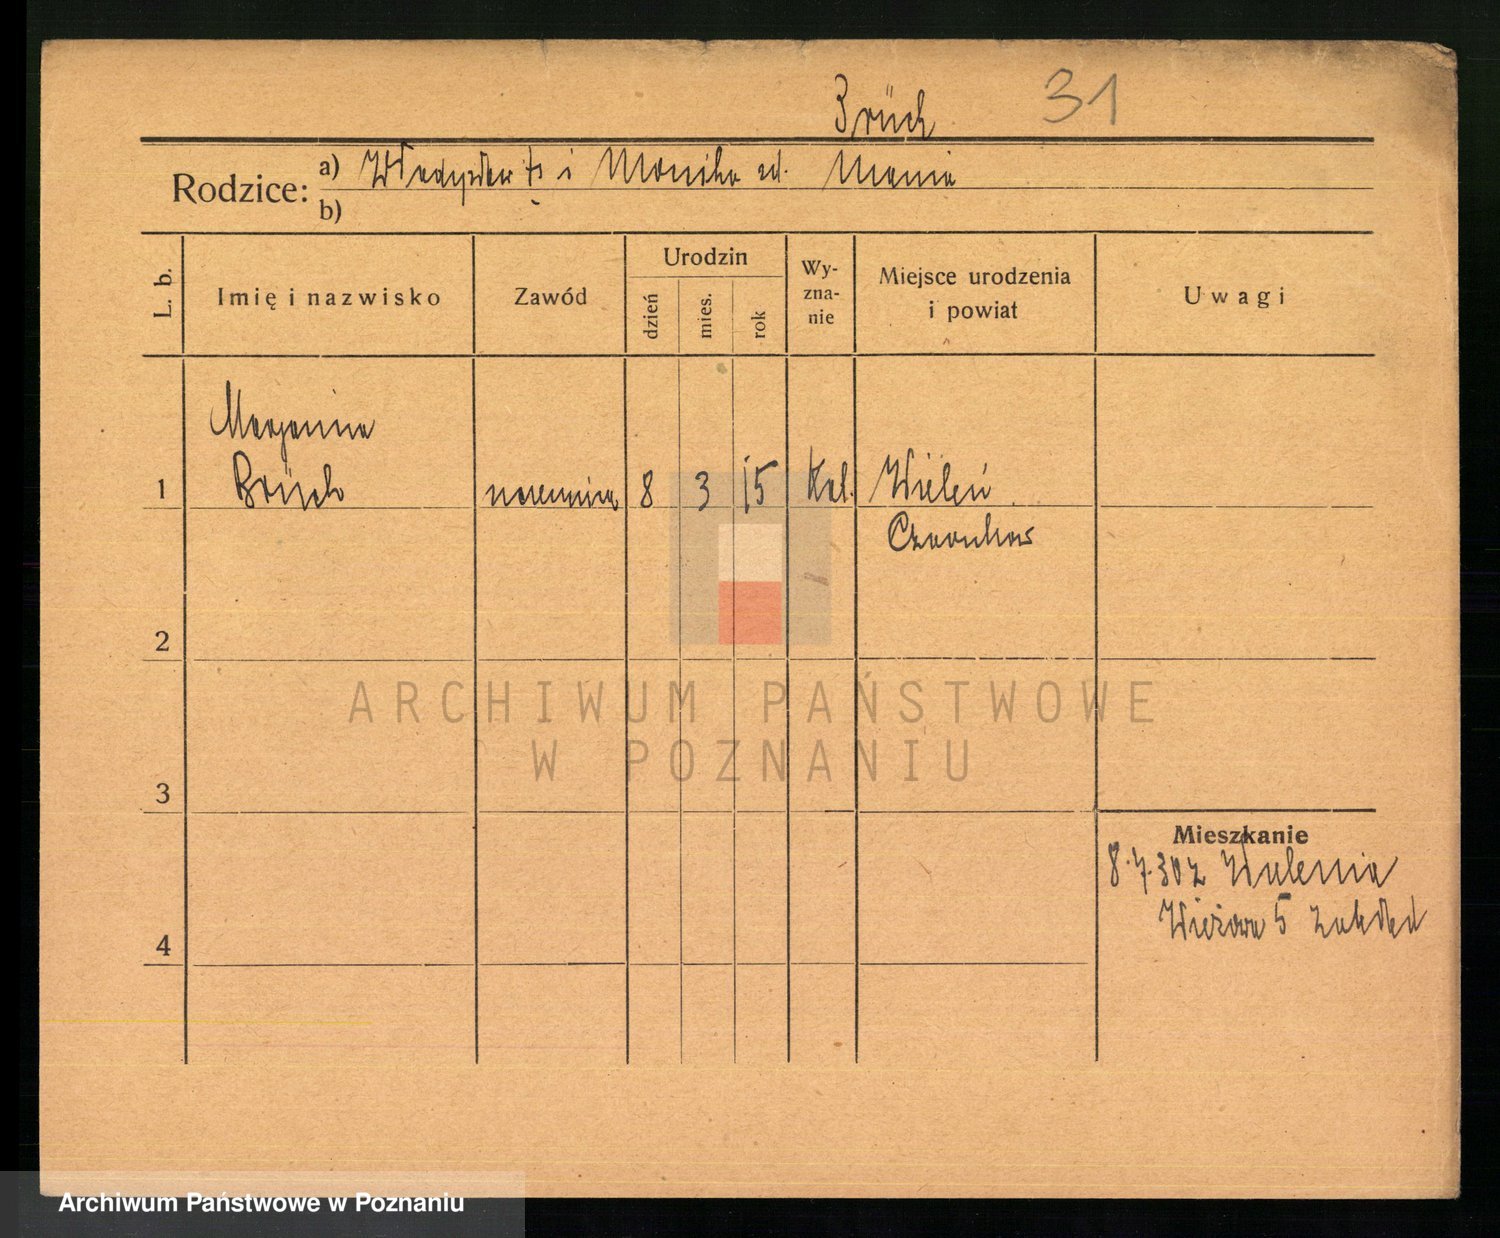 Brüch 31
Rodzice: a) Władysław † i Monika ud. Mania
b)
L. b. Imię i nazwisko Zawód Urodzin dzień mies. rok Wy-zna-nie Miejsce urodzenia i powiat Uwagi
Marjanina
1 Brüch 8 3 15 Kat. Wieleń
Czarnków
2
ARCHIWUM PAŃSTWOWE
W POZNANIU
3
Mieszkanie
8.7.30 z Wielenia
Wieżowa 5 zakład
4
Archiwum Państwowe w Poznaniu